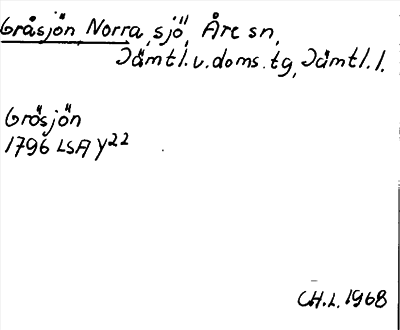 Gråsjön, Norra, sjö, Åre sn,
Jämtl.v.doms.tg, Jämtl.l.
Gråsjön
1796 LSA Y22
CH.L. 1968